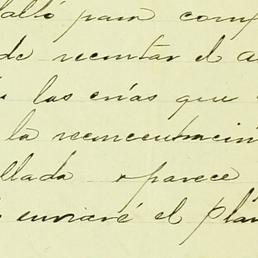 falló para comp
de recontar el a
las crías que
la reconcentración
llada aparece
enviaré el plan